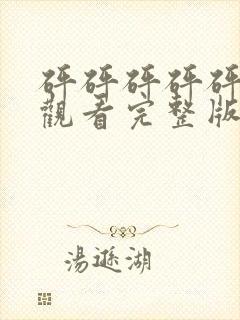 砰砰砰砰砰
觀看完整版
湯遜湖